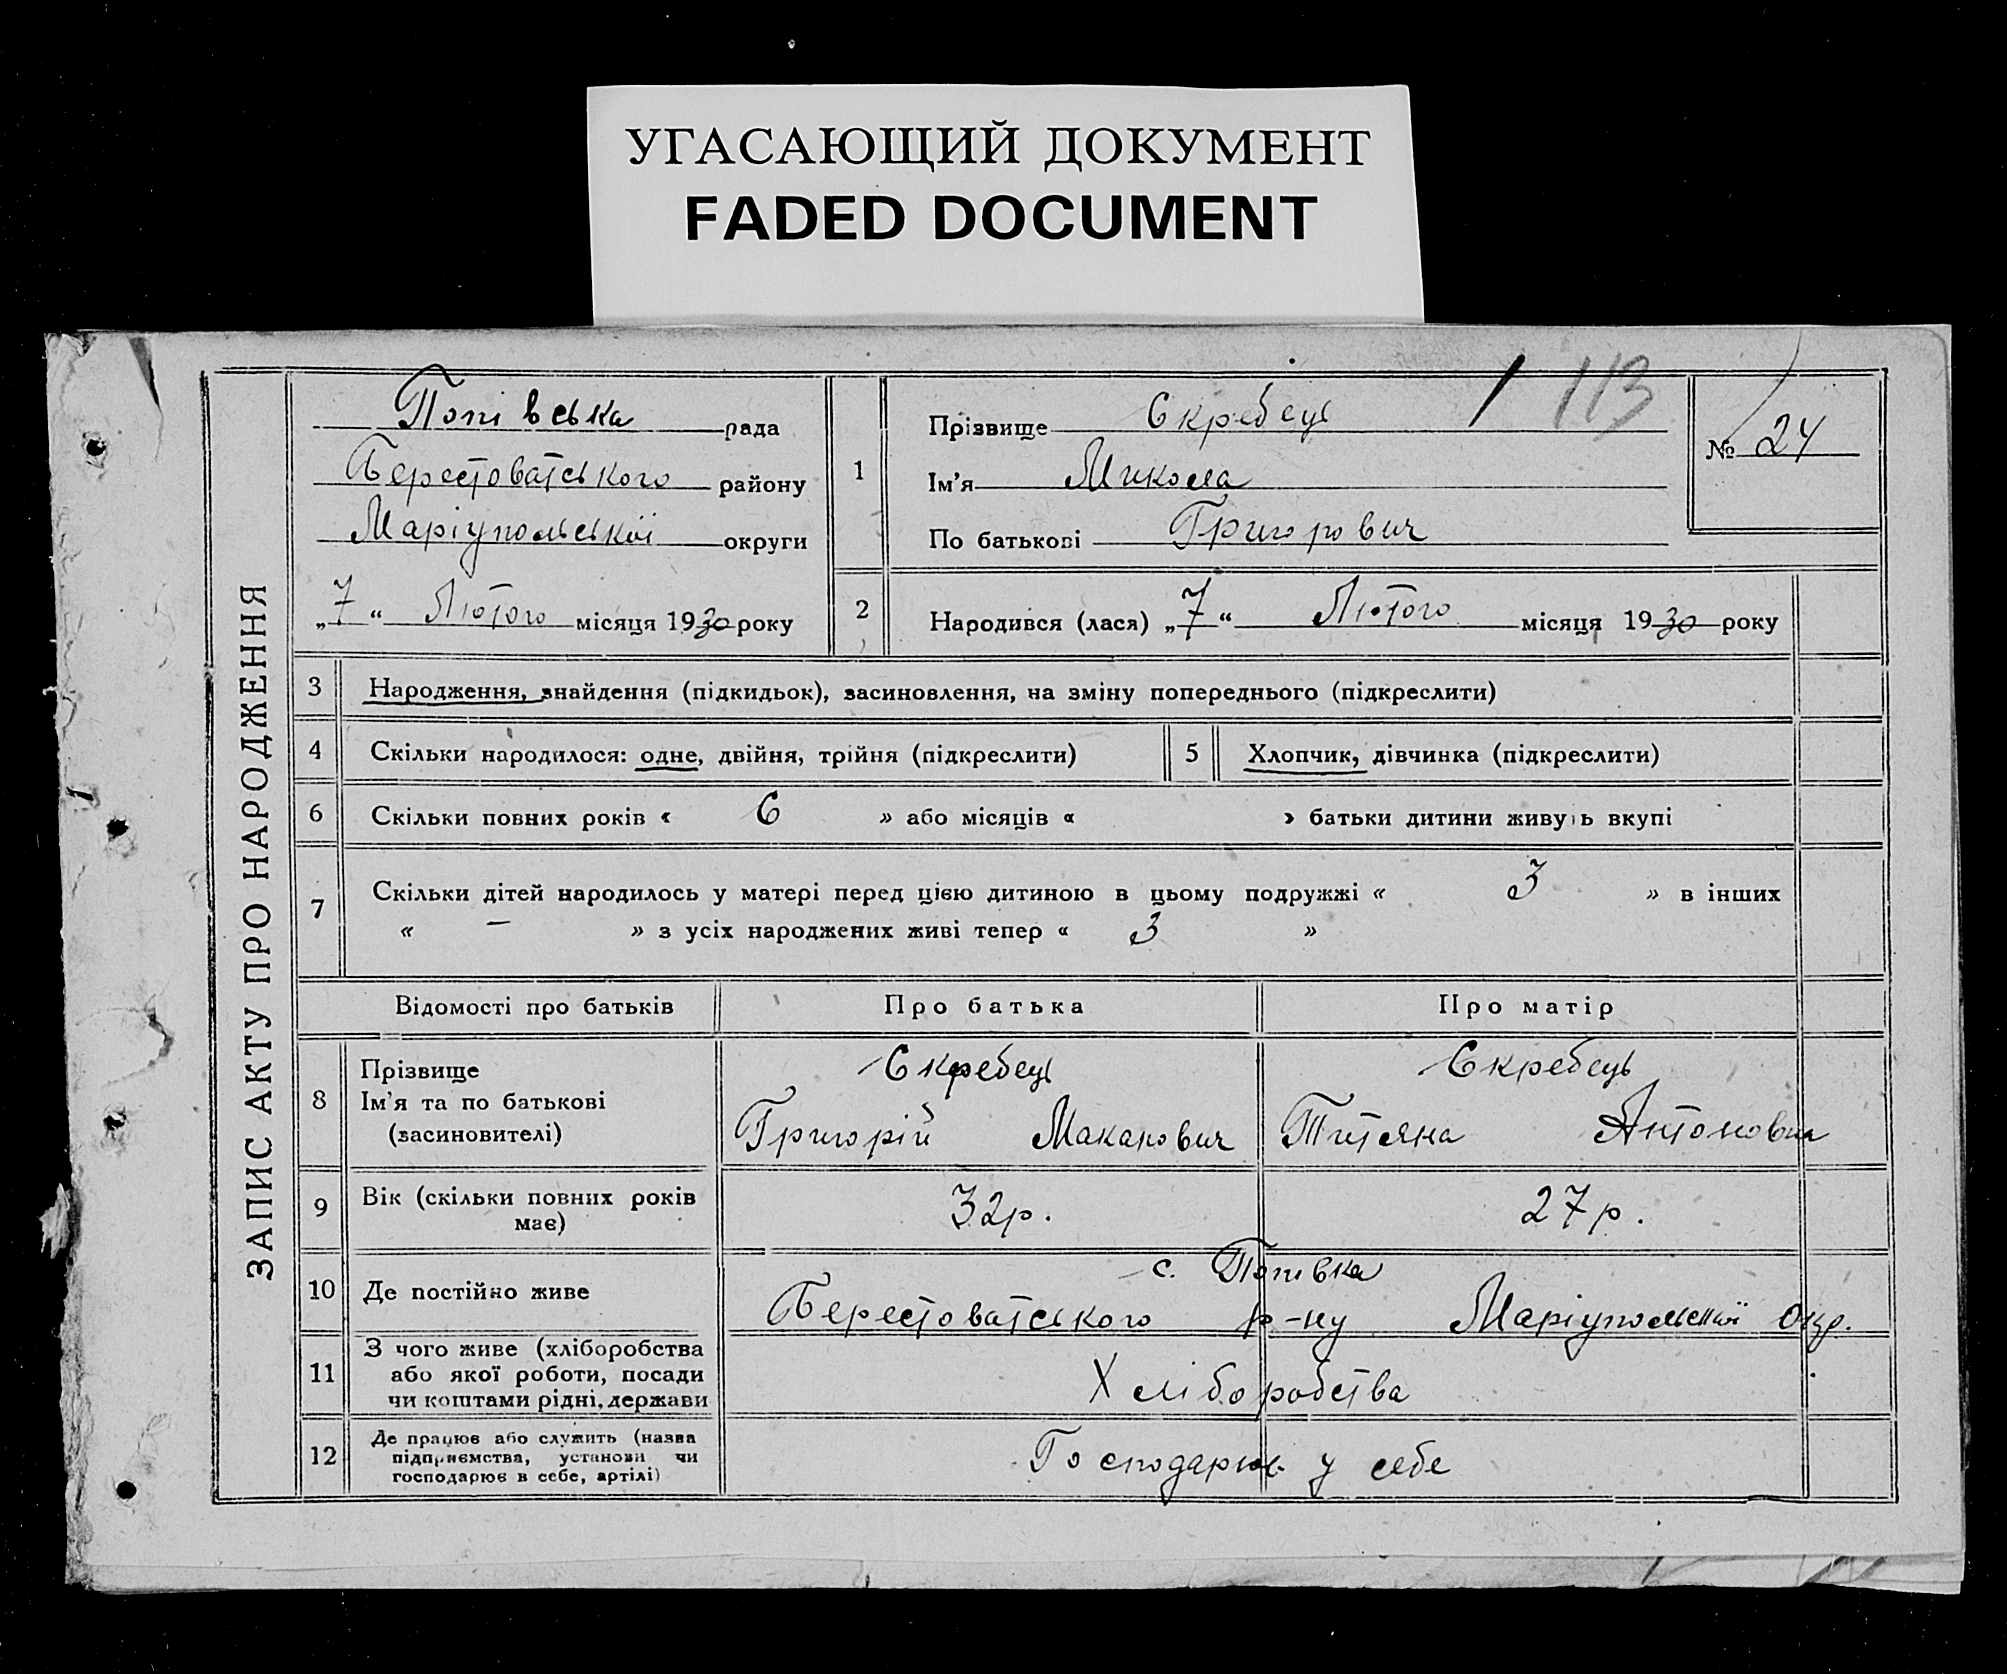 УГАСАЮЩИЙ ДОКУМЕНТ
FADED DOCUMENT
113
ЗАПИС АКТУ ПРО НАРОДЖЕННЯ
Попівська рада
Берестоватського району
Маріупольської округи
„7“ Лютого місяця 1930 року
1
Прізвище Скребець
Ім'я Микола
По батькові Григорович
№ 24
2 Народився (лася) „7“ Лютого місяця 1930 року
3 Народження, знайдення (підкидьок), засиновлення, на зміну попереднього (підкреслити)
4 Скільки народилося: одне, двійня, трійня (підкреслити) 5 Хлопчик, дівчинка (підкреслити)
6 Скільки повних років « 6 » або місяців « » батьки дитини живуть вкупі
7 Скільки дітей народилось у матері перед цією дитиною в цьому подружжі « 3 » в інших
« — » з усіх народжених живі тепер « 3 »
Відомості про батьків Про батька Про матір
8 Прізвище
Ім'я та по батькові
(засиновителі)
Скребець
Григорій
Скребець
Титяна Антоновна
9 Вік (скільки повних років
має)
32р. 27р.
10 Де постійно живе
с. Попівка
Берестоватського р-ну Маріупольської Окр.
11 З чого живе (хліборобства
або якої роботи, посади
чи коштами рідні, держави
Хліборобства
12 Де працює або служить (назва
підприємства, установи чи
господарює в себе, артілі)
Господарює у себе